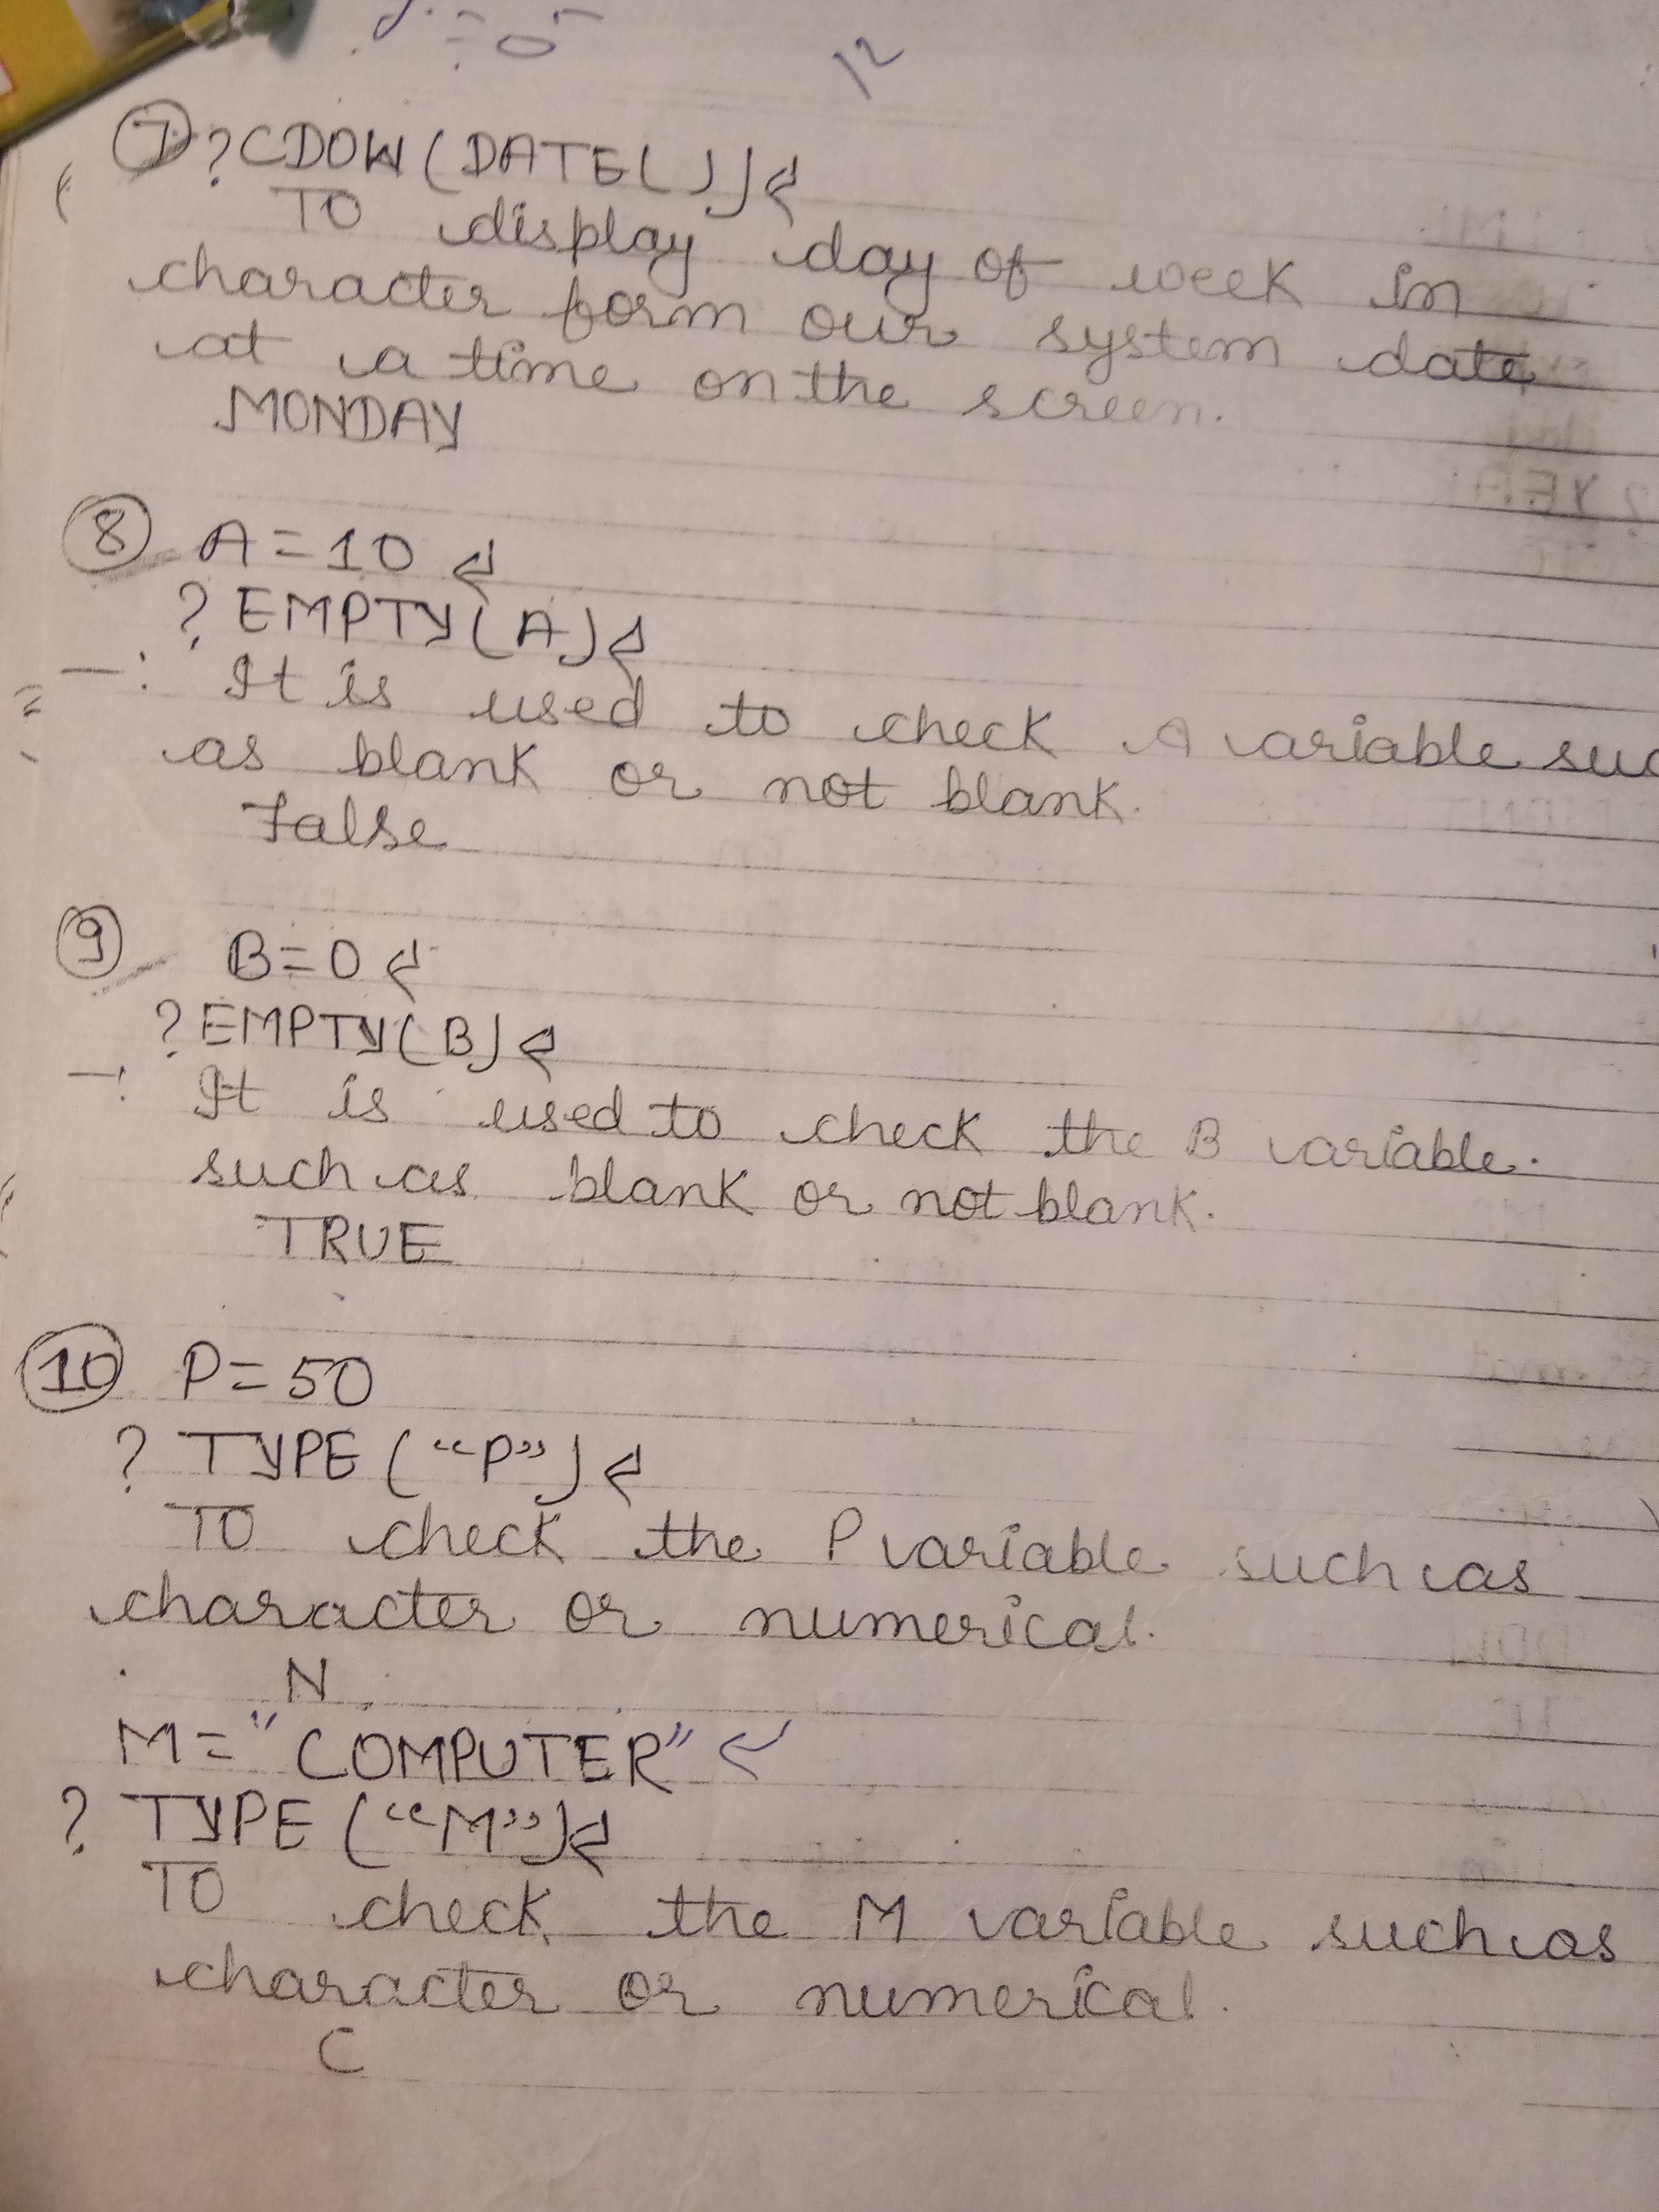 12
7 ?CDOW(DATE())↵
TO display day of week in
character form our system date
at a time on the screen.
MONDAY
8 A=10 ↵
?EMPTY(A)↵
—: It is used to check A variable suc
as blank or not blank.
False
9 B=0 ↵
?EMPTY(B)↵
—: It is used to check the B variable.
such as blank or not blank.
TRUE
10 P=50
? TYPE (“P”)↵
TO check the P variable such as
character or numerical.
N
M="COMPUTER" ↵
? TYPE (“M”)↵
TO check the M variable such as
character or numerical.
C